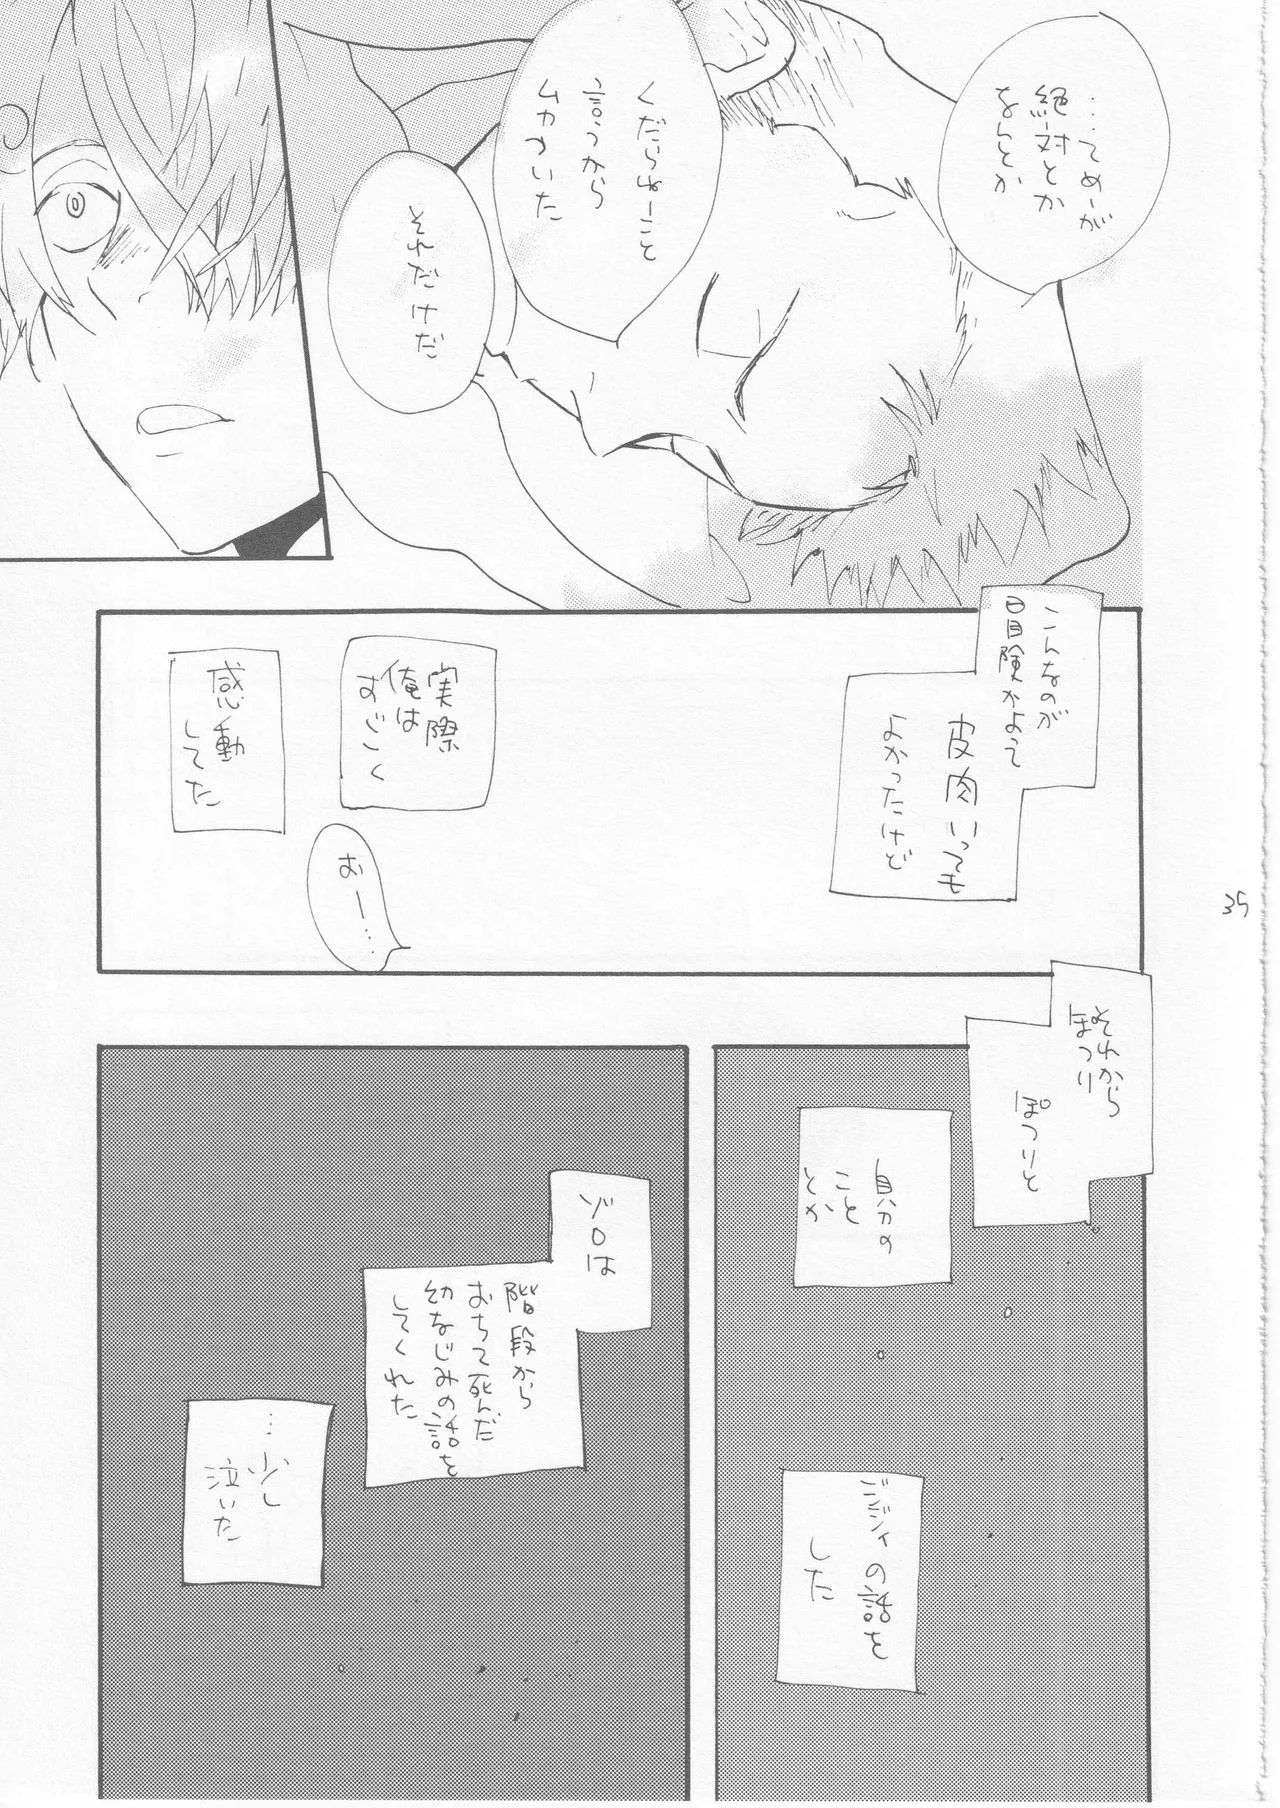 …てめーが
絶対とか
なんとか
くだらねーこと
言うから
ムカついた
それだけだ
こんなのが
冒険かよって
皮肉いっても
よかったけど
実際
俺は
すごく
感動
してた
おー……
それから
ぽつり
ぽつりと
自分の
こと
とか
ジジィの話を
した
ゾロは
階段から
おちて死んだ
幼なじみの話を
してくれた
…少し
泣いた
35